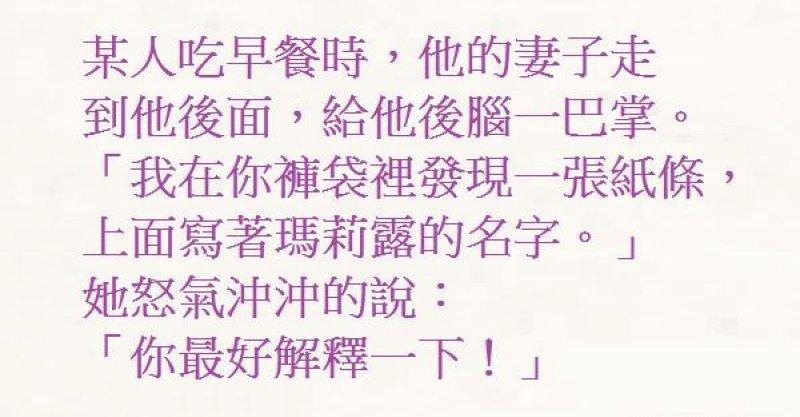 某人吃早餐時，他的妻子走
到他後面，給他後腦一巴掌。
「我在你褲袋裡發現一張紙條，
上面寫著瑪莉露的名字。」
她怒氣沖沖的說：
「你最好解釋一下！」